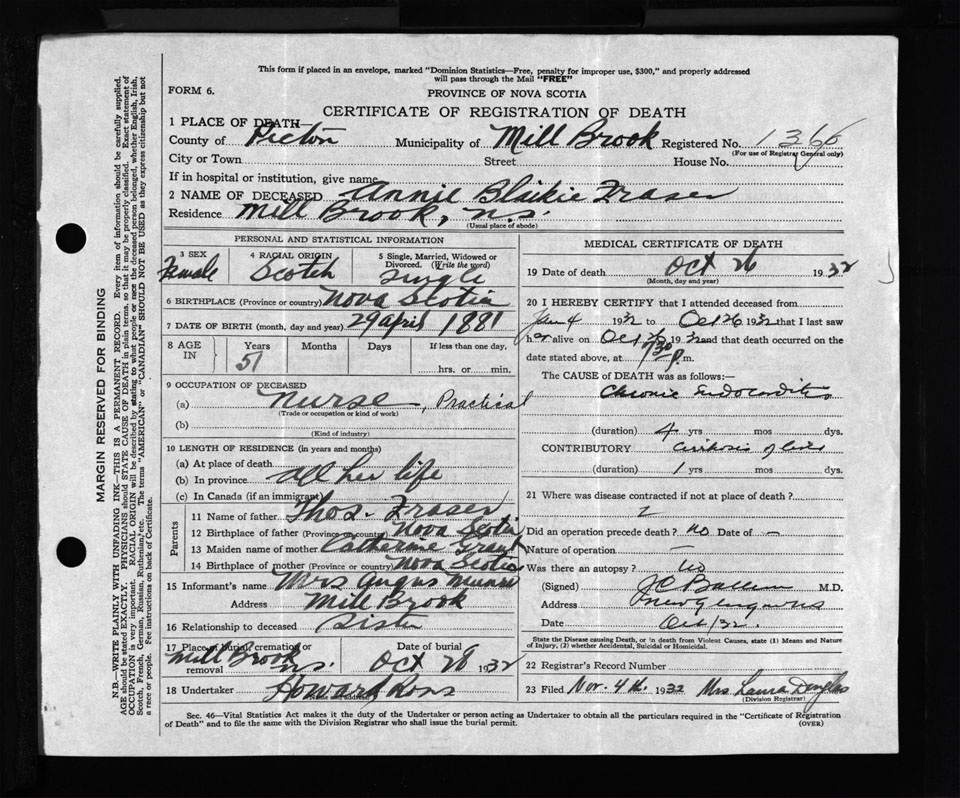 This form if placed in an envelope, marked "Dominion Statistics—Free, penalty for improper use, $300," and properly addressed
will pass through the Mail "FREE"
FORM 6.
PROVINCE OF NOVA SCOTIA
CERTIFICATE OF REGISTRATION OF DEATH
1 PLACE OF DEATH—
County of Pictou Municipality of Mill Brook Registered No. 1366
(For use of Registrar General only)
City or Town Street House No.
If in hospital or institution, give name
2 NAME OF DECEASED Annie Blaikie Fraser
Residence Mill Brook, N.S.
(Usual place of abode)
PERSONAL AND STATISTICAL INFORMATION
3 SEX 4 RACIAL ORIGIN 5 Single, Married, Widowed or
Divorced. (Write the word)
Female Scotch Single
6 BIRTHPLACE (Province or country) Nova Scotia
7 DATE OF BIRTH (month, day and year) 29 April 1881
8 AGE IN Years Months Days If less than one day,
51 hrs. or min.
9 OCCUPATION OF DECEASED
(a) Nurse, Practical
(Trade or occupation or kind of work)
(b)
(Kind of industry)
10 LENGTH OF RESIDENCE (in years and months)
(a) At place of death
(b) In province all her life
(c) In Canada (if an immigrant)
Parents
11 Name of father Thos. Fraser
12 Birthplace of father (Province or country) Nova Scotia
13 Maiden name of mother Catherine Grant
14 Birthplace of mother (Province or country) Nova Scotia
15 Informant's name Mrs Angus Munro
Address Mill Brook
16 Relationship to deceased Sister
17 Place of burial, cremation or removal Date of burial
Mill Brook N.S. Oct 28 1932
18 Undertaker Howard Ross
MEDICAL CERTIFICATE OF DEATH
19 Date of death Oct 26 1932
(Month, day and year)
20 I HEREBY CERTIFY that I attended deceased from
Jan 4 1932 to Oct 26 1932 that I last saw
her alive on Oct 26 1932 and that death occurred on the
date stated above, at 7:30 p.m.
The CAUSE of DEATH was as follows:
Chronic Endocarditis
(duration) 4 yrs mos dys.
CONTRIBUTORY Cirrhosis of liver
(duration) 1 yrs mos dys.
21 Where was disease contracted if not at place of death?
Did an operation precede death? no Date of —
Nature of operation —
Was there an autopsy? no
(Signed) M.D.
Address New Glasgow N.S.
Date Oct/32.
State the Disease causing Death, or in death from Violent Causes, state (1) Means and Nature
of Injury, (2) whether Accidental, Suicidal or Homicidal.
22 Registrar's Record Number
23 Filed Nov. 4th 1932 Mrs Laura Douglas
(Division Registrar)
Sec. 46—Vital Statistics Act makes it the duty of the Undertaker or person acting as Undertaker to obtain all the particulars required in the "Certificate of Registration
of Death" and to file the same with the Division Registrar who shall issue the burial permit.
(OVER)
MARGIN RESERVED FOR BINDING
N.B.—WRITE PLAINLY WITH UNFADING INK—THIS IS A PERMANENT RECORD. Every item of information should be carefully supplied.
AGE should be stated EXACTLY. PHYSICIANS should STATE CAUSE OF DEATH in plain terms, so that it may be properly classified. Exact statement of
OCCUPATION is very important. RACIAL ORIGIN will be described by stating to what people or race the deceased person belonged, whether English, Irish,
Scotch, French, German, Russian, Ruthenian, etc. The terms "AMERICAN" or "CANADIAN" SHOULD NOT BE USED as they express citizenship but not
a race or people. Fee instructions on back of Certificate.